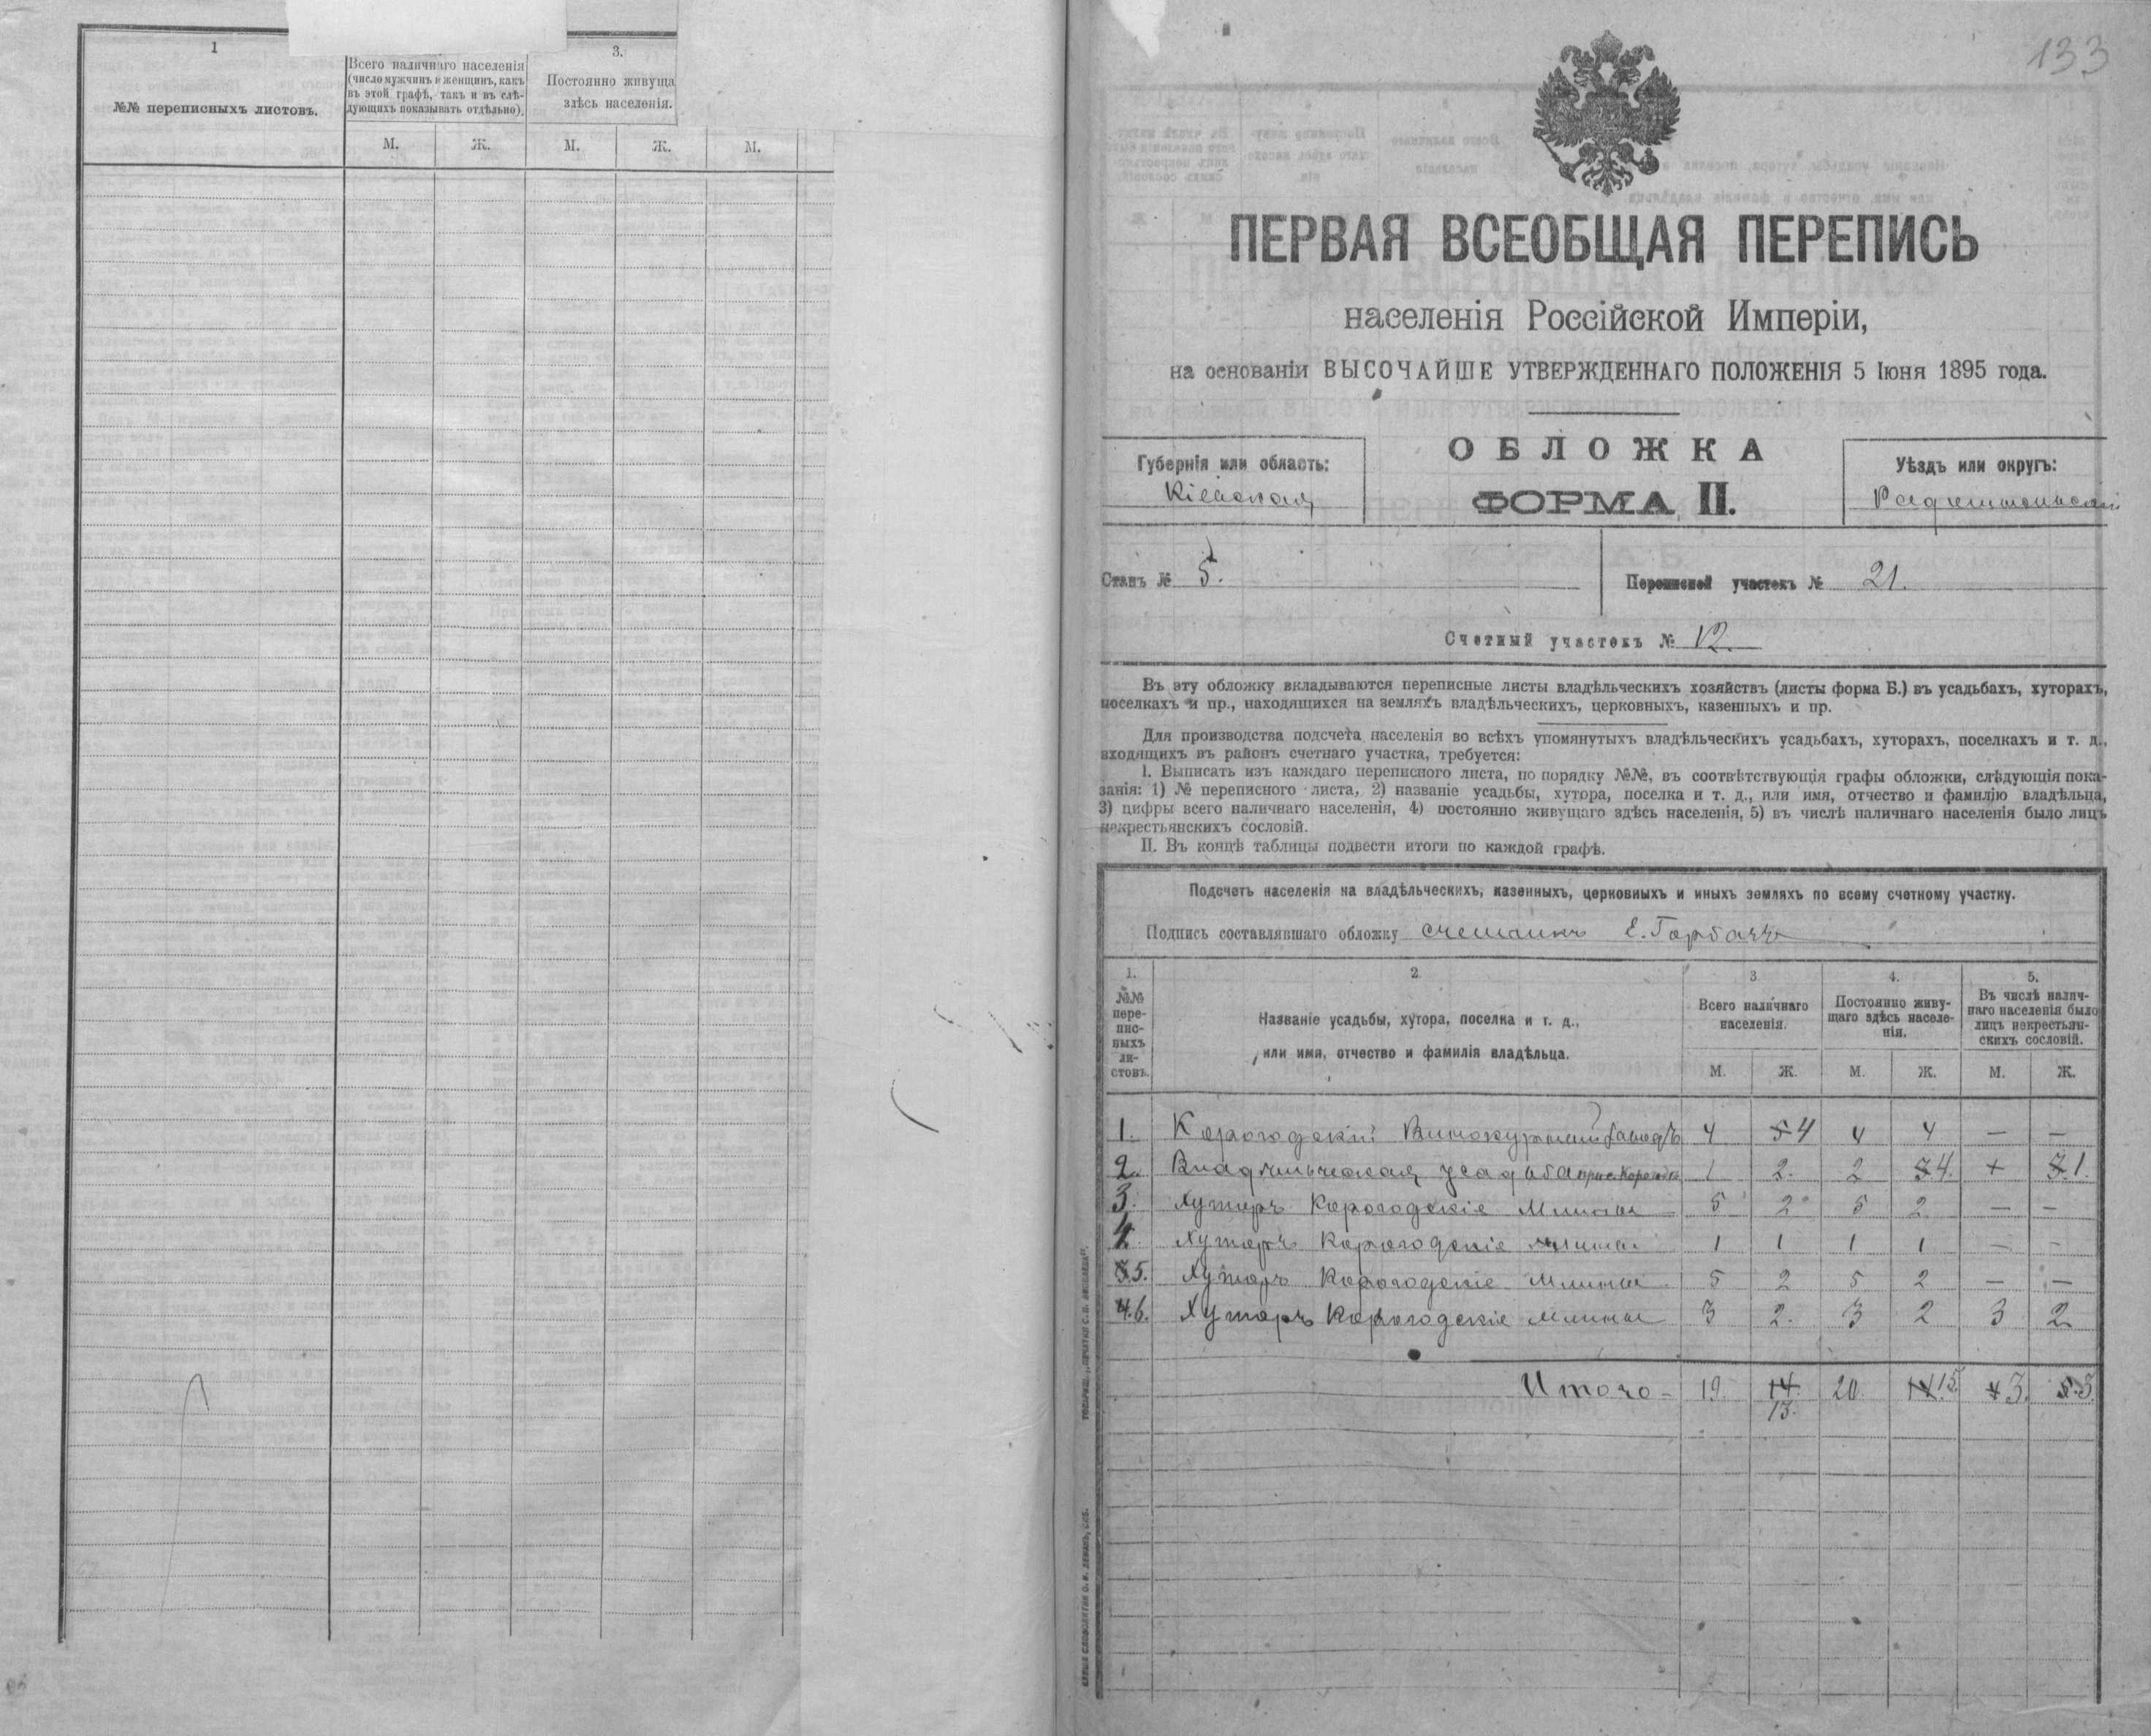 1
№№ переписныхъ листовъ.
Всего наличнаго населенія
(число мужчинъ и женщинъ, какъ
въ этой графѣ, такъ и въ слѣ-
дующихъ показывать отдѣльно).
3.
Постоянно живуща
здѣсь населенія.
М. Ж. М. Ж. М.
133
ПЕРВАЯ ВСЕОБЩАЯ ПЕРЕПИСЬ
населенія Россійской Имперіи,
на основаніи ВЫСОЧАЙШЕ УТВЕРЖДЕННАГО ПОЛОЖЕНІЯ 5 Іюня 1895 года.
Губернія или область:
Кіевская
ОБЛОЖКА
ФОРМА II.
Уѣздъ или округъ:
Радомысльскій
Станъ № 5.
Переписной участекъ № 21.
Счетный участокъ № 12.
Въ эту обложку вкладываются переписные листы владѣльческихъ хозяйствъ (листы форма Б.) въ усадьбахъ, хуторахъ,
поселкахъ и пр., находящихся на земляхъ владѣльческихъ, церковныхъ, казенныхъ и пр.
Для производства подсчета населенія во всѣхъ упомянутыхъ владѣльческихъ усадьбахъ, хуторахъ, поселкахъ и т. д.,
входящихъ въ районъ счетнаго участка, требуется:
I. Выписать изъ каждаго переписного листа, по порядку №№, въ соотвѣтствующія графы обложки, слѣдующія пока-
занія: 1) № переписного листа, 2) названіе усадьбы, хутора, поселка и т. д., или имя, отчество и фамилію владѣльца,
3) цифры всего наличнаго населенія, 4) постоянно живущаго здѣсь населенія, 5) въ числѣ наличнаго населенія было лицъ
некрестьянскихъ сословій.
II. Въ концѣ таблицы подвести итоги по каждой графѣ.
Подсчетъ населенія на владѣльческихъ, казенныхъ, церковныхъ и иныхъ земляхъ по всему счетному участку.
Подпись составлявшаго обложку счетчикъ Е. Горбачъ
1.
№№
пере-
пис-
ныхъ
ли-
стовъ.
2
Названіе усадьбы, хутора, поселка и т. д.,
или имя, отчество и фамилія владѣльца.
3
Всего наличнаго
населенія.
4.
Постоянно живу-
щаго здѣсь населе-
нія.
5.
Въ числѣ налич-
наго населенія было
лицъ некрестьян-
скихъ сословій.
М. Ж. М. Ж. М. Ж.
1. Корогодскій Винокуренный заводъ 4 5 4 4 4 — —
2. Владѣльческая усадьба при с. Корогодѣ 1 2. 2 3 4. + 3. 1.
3. Хуторъ Корогодскіе Млины 5 2 5 2 — —
4. Хуторъ Корогодскіе Млины 1 1 1 1 — —
3 5. Хуторъ Корогодскіе Млины 5 2 5 2 — —
4. 6. Хуторъ Корогодскіе Млины 3 2. 3 2 3 2
Итого - 19. 14. 20. 14 15. 4 3. 5. 3
13.